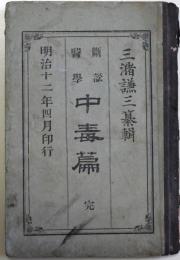 三潴謙三纂輯
斷訟醫學
中毒篇 完
明治十二年四月印行